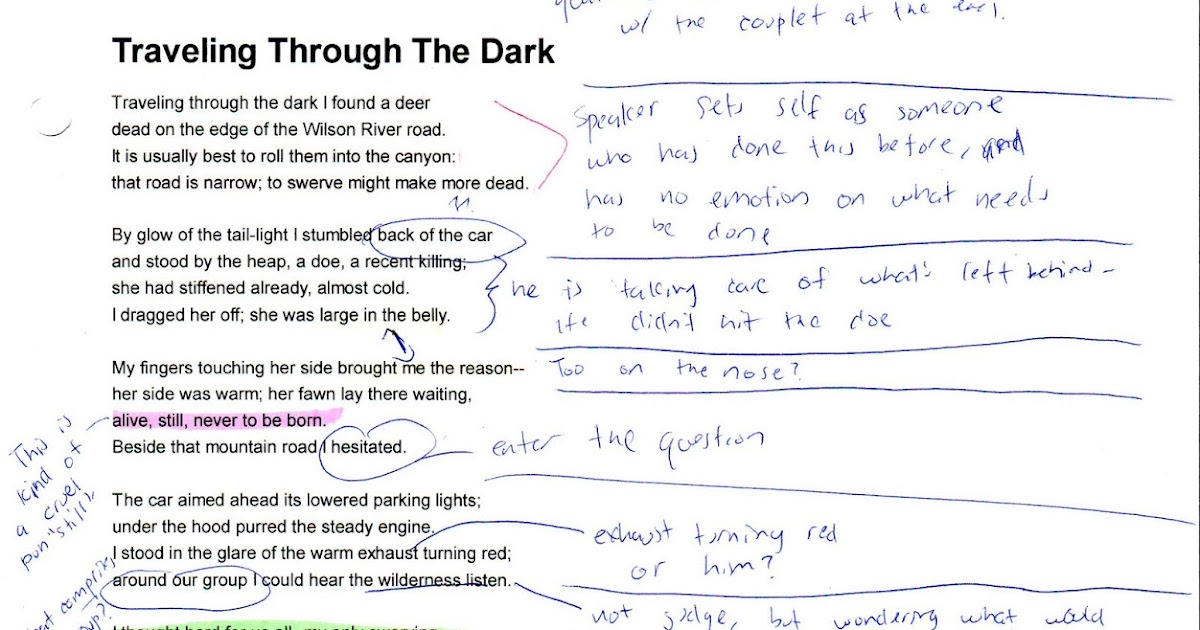 w/ the couplet at the end.
Traveling Through The Dark
Traveling through the dark I found a deer
dead on the edge of the Wilson River road.
It is usually best to roll them into the canyon:
that road is narrow; to swerve might make more dead.
Speaker sets self as someone
who has done this before, and
has no emotion on what needs
to be done
By glow of the tail-light I stumbled back of the car
and stood by the heap, a doe, a recent killing;
she had stiffened already, almost cold.
I dragged her off; she was large in the belly.
he is taking care of what's left behind -
He didn't hit the doe
My fingers touching her side brought me the reason--
her side was warm; her fawn lay there waiting,
alive, still, never to be born.
Beside that mountain road I hesitated.
Too on the nose?
This is
kind of
a cruel
pun "still".
enter the question
The car aimed ahead its lowered parking lights;
under the hood purred the steady engine.
I stood in the glare of the warm exhaust turning red;
around our group I could hear the wilderness listen.
exhaust turning red
or him?
not judge, but wondering what would
I thought hard for us all--my only swerving